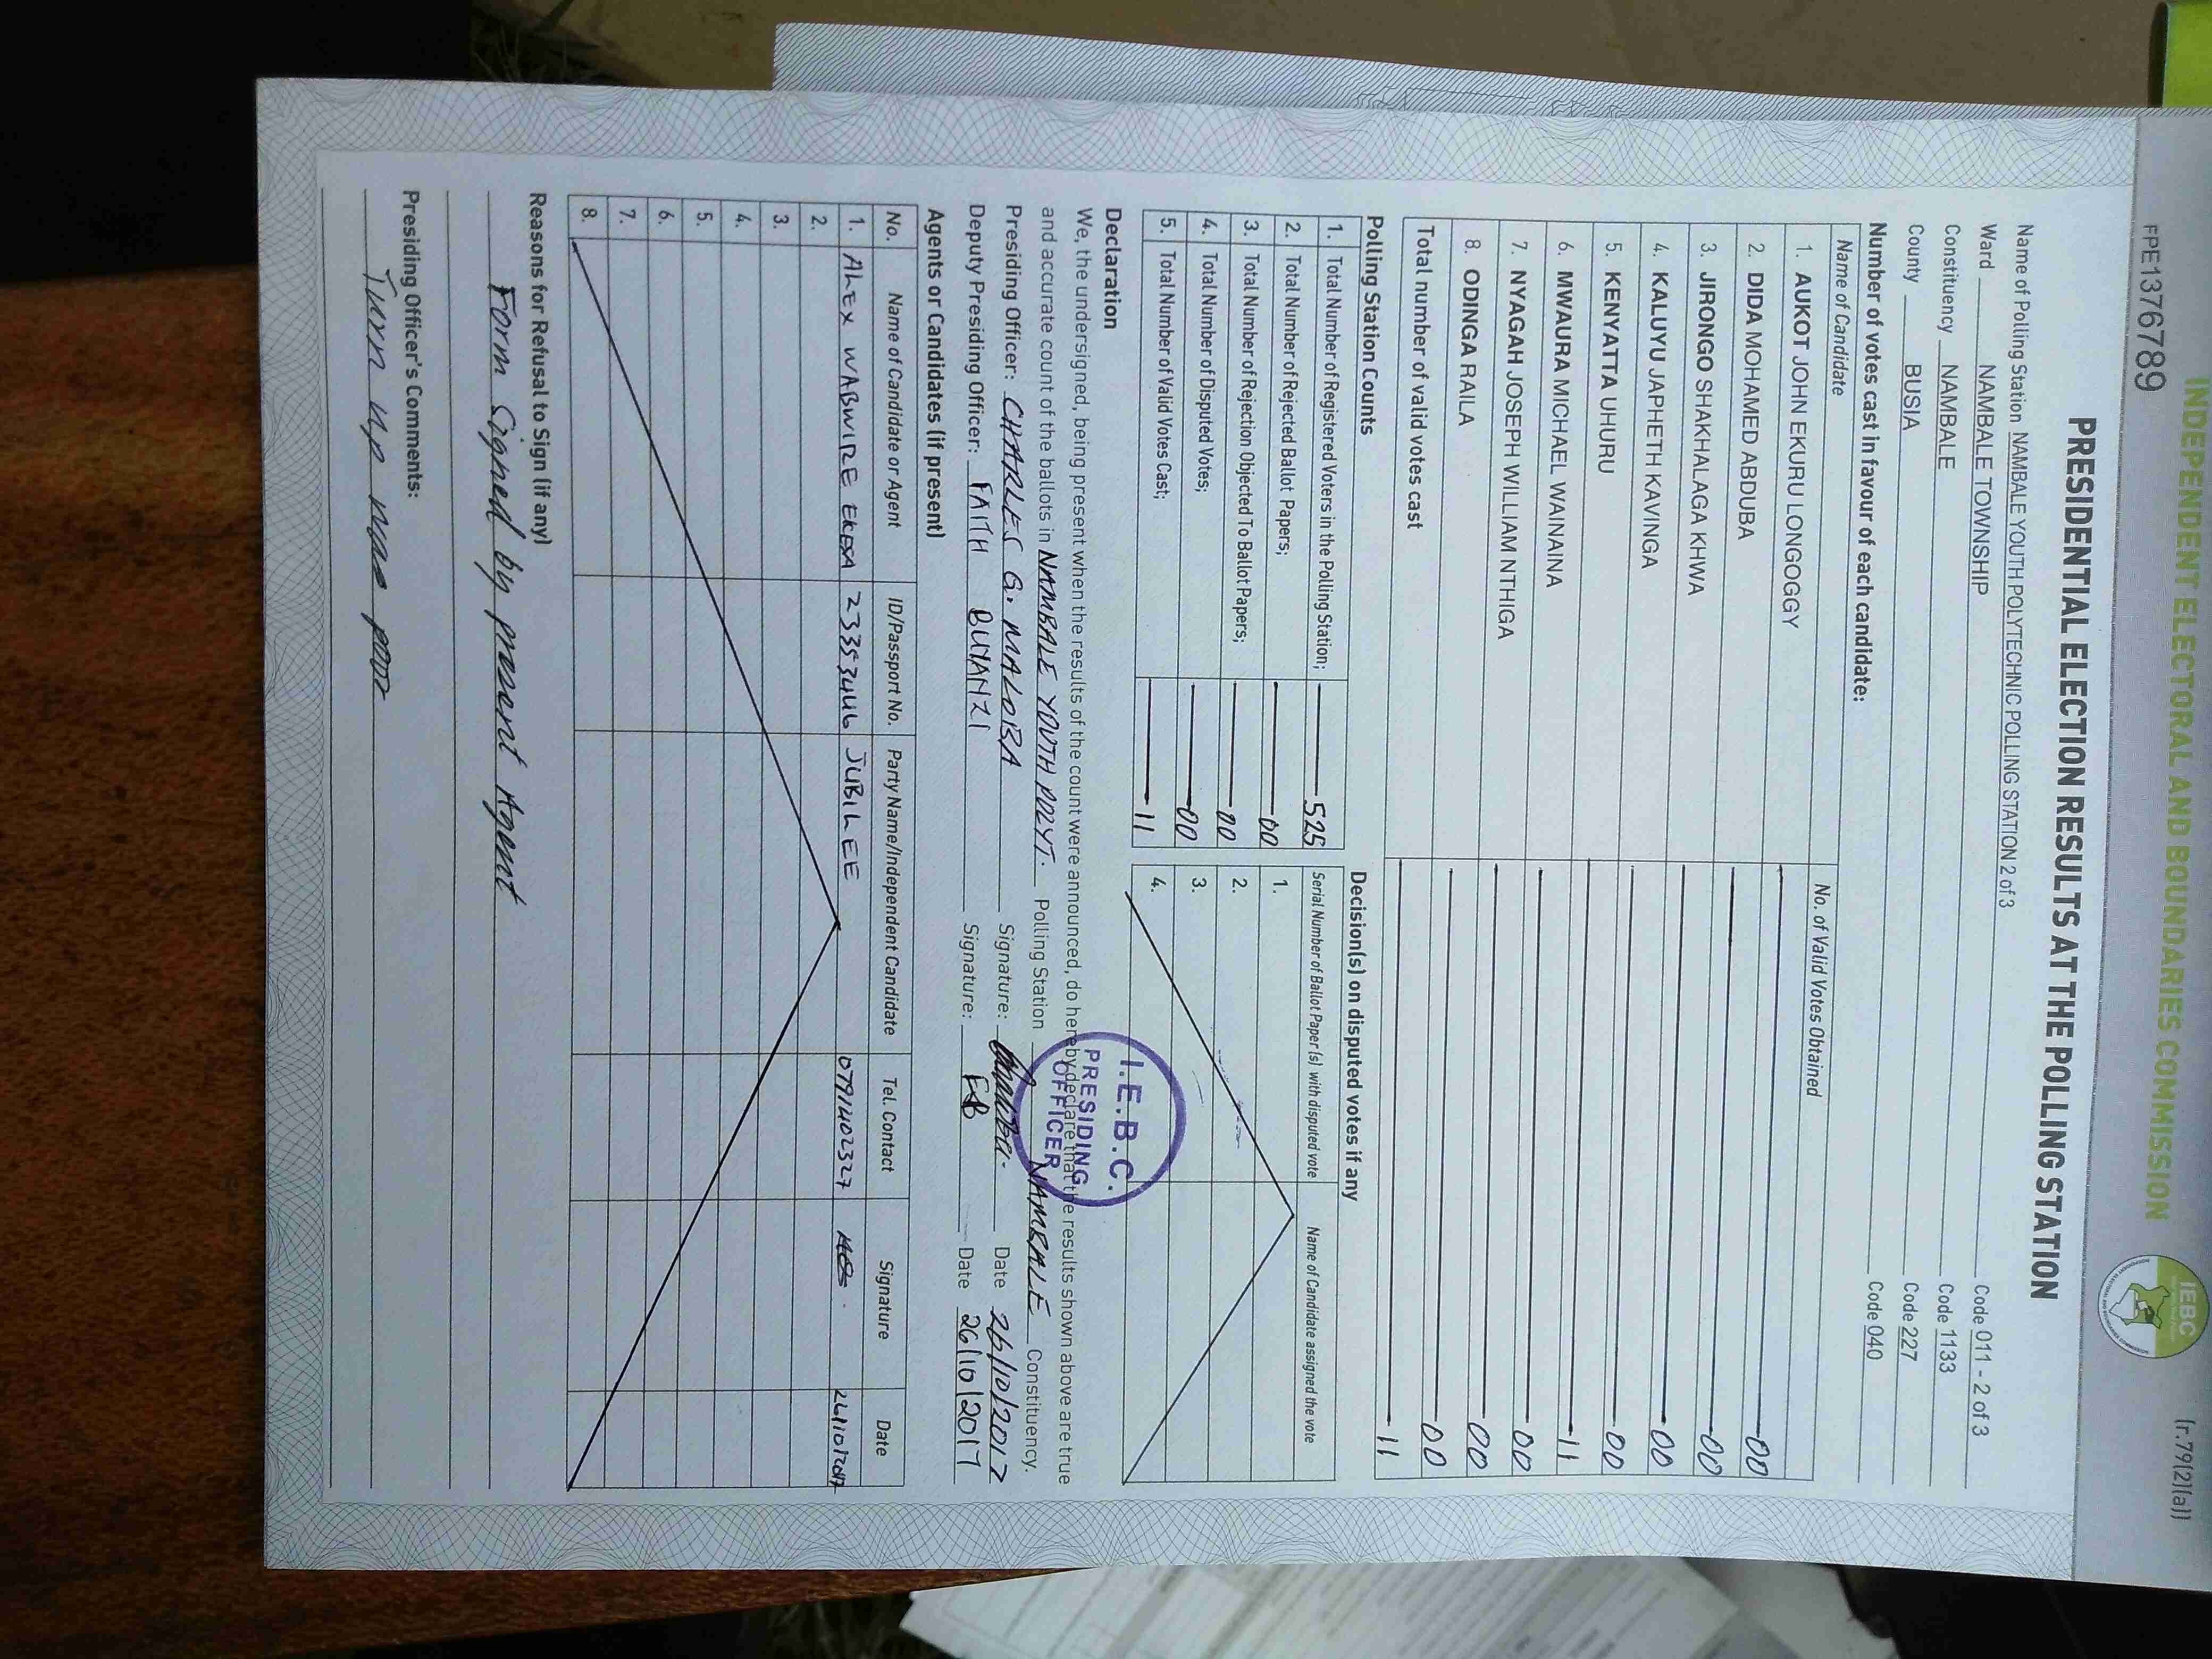 INDEPENDENT ELECTORAL AND BOUNDARIES COMMISSION
IEBC
(r.79(2)(a))
FPE1376789
PRESIDENTIAL ELECTION RESULTS AT THE POLLING STATION
Name of Polling Station NAMBALE YOUTH POLYTECHNIC POLLING STATION 2 of 3 Code 011 - 2 of 3
Ward NAMBALE TOWNSHIP Code 1133
Constituency NAMBALE Code 227
County BUSIA Code 040
Number of votes cast in favour of each candidate:
Name of Candidate No. of Valid Votes Obtained
1. AUKOT JOHN EKURU LONGOGGY 00
2. DIDA MOHAMED ABDUBA 00
3. JIRONGO SHAKHALAGA KHWA 00
4. KALUYU JAPHETH KAVINGA 00
5. KENYATTA UHURU 11
6. MWAURA MICHAEL WAINAINA 00
7. NYAGAH JOSEPH WILLIAM NTHIGA 00
8. ODINGA RAILA 00
Total number of valid votes cast 11
Polling Station Counts
1. Total Number of Registered Voters in the Polling Station; 525
2. Total Number of Rejected Ballot Papers; 00
3. Total Number of Rejection Objected To Ballot Papers; 00
4. Total Number of Disputed Votes; 00
5. Total Number of Valid Votes Cast; 11
Decision(s) on disputed votes if any
Serial Number of Ballot Paper (s) with disputed vote Name of Candidate assigned the vote
1.
2.
3.
4.
Declaration
We, the undersigned, being present when the results of the count were announced, do hereby declare that the results shown above are true
and accurate count of the ballots in NAMBALE YOUTH POLYT. Polling Station NAMBALE Constituency.
I.E.B.C.
PRESIDING
OFFICER
Presiding Officer: CHARLES G. MALOBA Signature: Date 26/10/2017
Deputy Presiding Officer: FAITH BUYANZI Signature: FB Date 26/10/2017
Agents or Candidates (if present)
No. Name of Candidate or Agent ID/Passport No. Party Name/Independent Candidate Tel. Contact Signature Date
1. ALEX WABWIRE EKESA 23353446 JUBILEE 0791402327 26/10/2017
2.
3.
4.
5.
6.
7.
8.
Reasons for Refusal to Sign (if any)
Form Signed by present Agent
Presiding Officer's Comments:
Turn up was poor